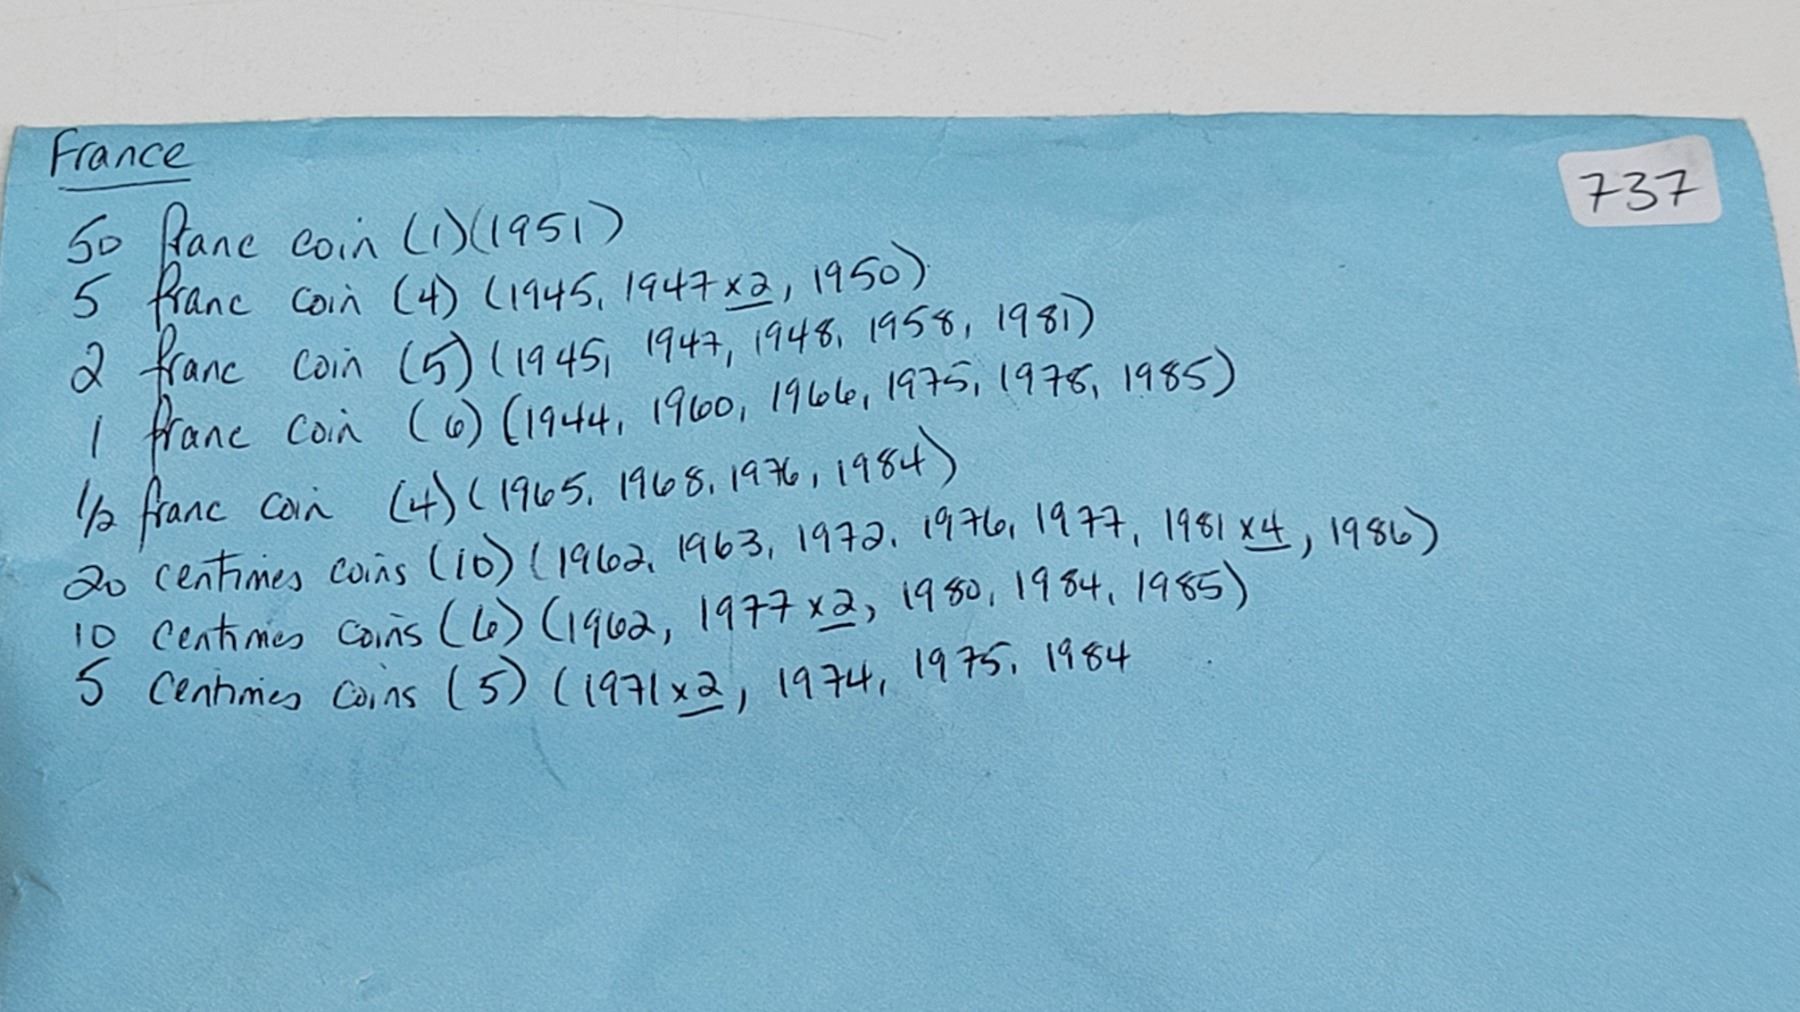 France
737
50 franc coin (1)(1951)
5 franc coin (4) (1945, 1947 x2, 1950)
2 franc coin (5) (1945, 1947, 1948, 1958, 1981)
1 franc coin (6) (1944, 1960, 1966, 1975, 1978, 1985)
1/2 franc coin (4) (1965, 1968, 1976, 1984)
20 centimes coins (10) (1962, 1963, 1972, 1976, 1977, 1981 x4, 1986)
10 centimes coins (6) (1962, 1977 x2, 1980, 1984, 1985)
5 centimes coins (5) (1971 x2, 1974, 1975, 1984